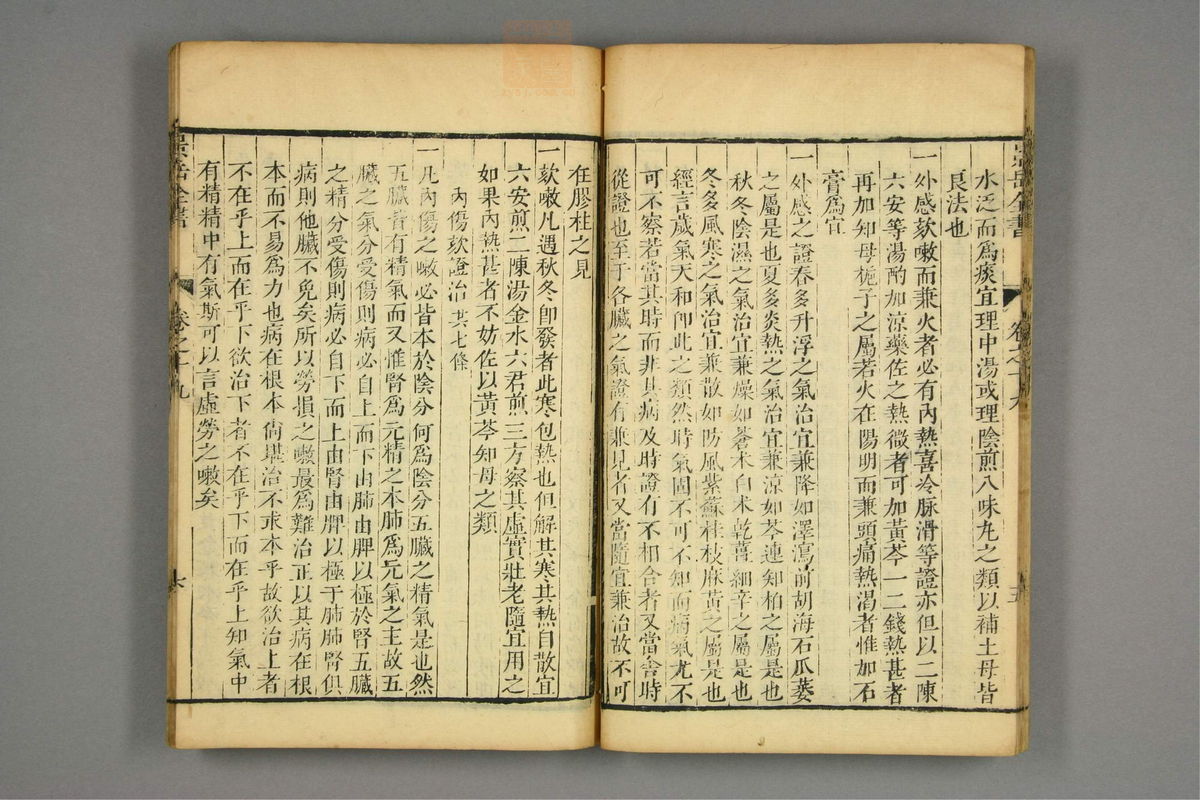 景岳全書
卷之十九
五
水泛而爲痰宜理中湯或理陰煎八味丸之類以補土母皆
良法也
一外感欬嗽而兼火者必有內熱喜冷脉滑等證亦但以二陳
六安等湯酌加涼藥佐之熱微者可加黃芩一二錢熱甚者
再加知母梔子之屬若火在陽明而兼頭痛熱渴者惟加石
膏爲宜
一外感之證春多升浮之氣治宜兼降如澤瀉前胡海石瓜蔞
之屬是也夏多炎熱之氣治宜兼涼如芩連知柏之屬是也
秋冬陰濕之氣治宜兼燥如蒼术白术乾薑細辛之屬是也
冬多風寒之氣治宜兼散如防風紫蘇桂枝麻黃之屬是也
經言歲氣天和卽此之類然時氣固不可不知而病氣尤不
可不察若當其時而非其病及時證有不相合者又當舍時
從證也至于各臟之氣證有兼見者又當隨宜兼治故不可
任膠柱之見
一欬嗽凡遇秋冬卽發者此寒包熱也但解其寒其熱自散宜
六安煎二陳湯金水六君煎三方察其虛實壯老隨宜用之
如果內熱甚者不妨佐以黃芩知母之類
內傷欬證治 共七條
一凡內傷之嗽必皆本於陰分何爲陰分五臟之精氣是也然
五臟皆有精氣而又惟腎爲元精之本肺爲元氣之主故五
臟之氣分受傷則病必自上而下由肺由脾以極於腎五臟
之精分受傷則病必自下而上由腎由脾以極于肺肺腎俱
病則他臟不免矣所以勞損之嗽最爲難治正以其病在根
本而不易爲力也病在根本尚堪治不求本乎故欲治上者
不在乎上而在乎下欲治下者不在乎下而在乎上知氣中
有精精中有氣斯可以言虛勞之嗽矣
景岳全書
卷之十九